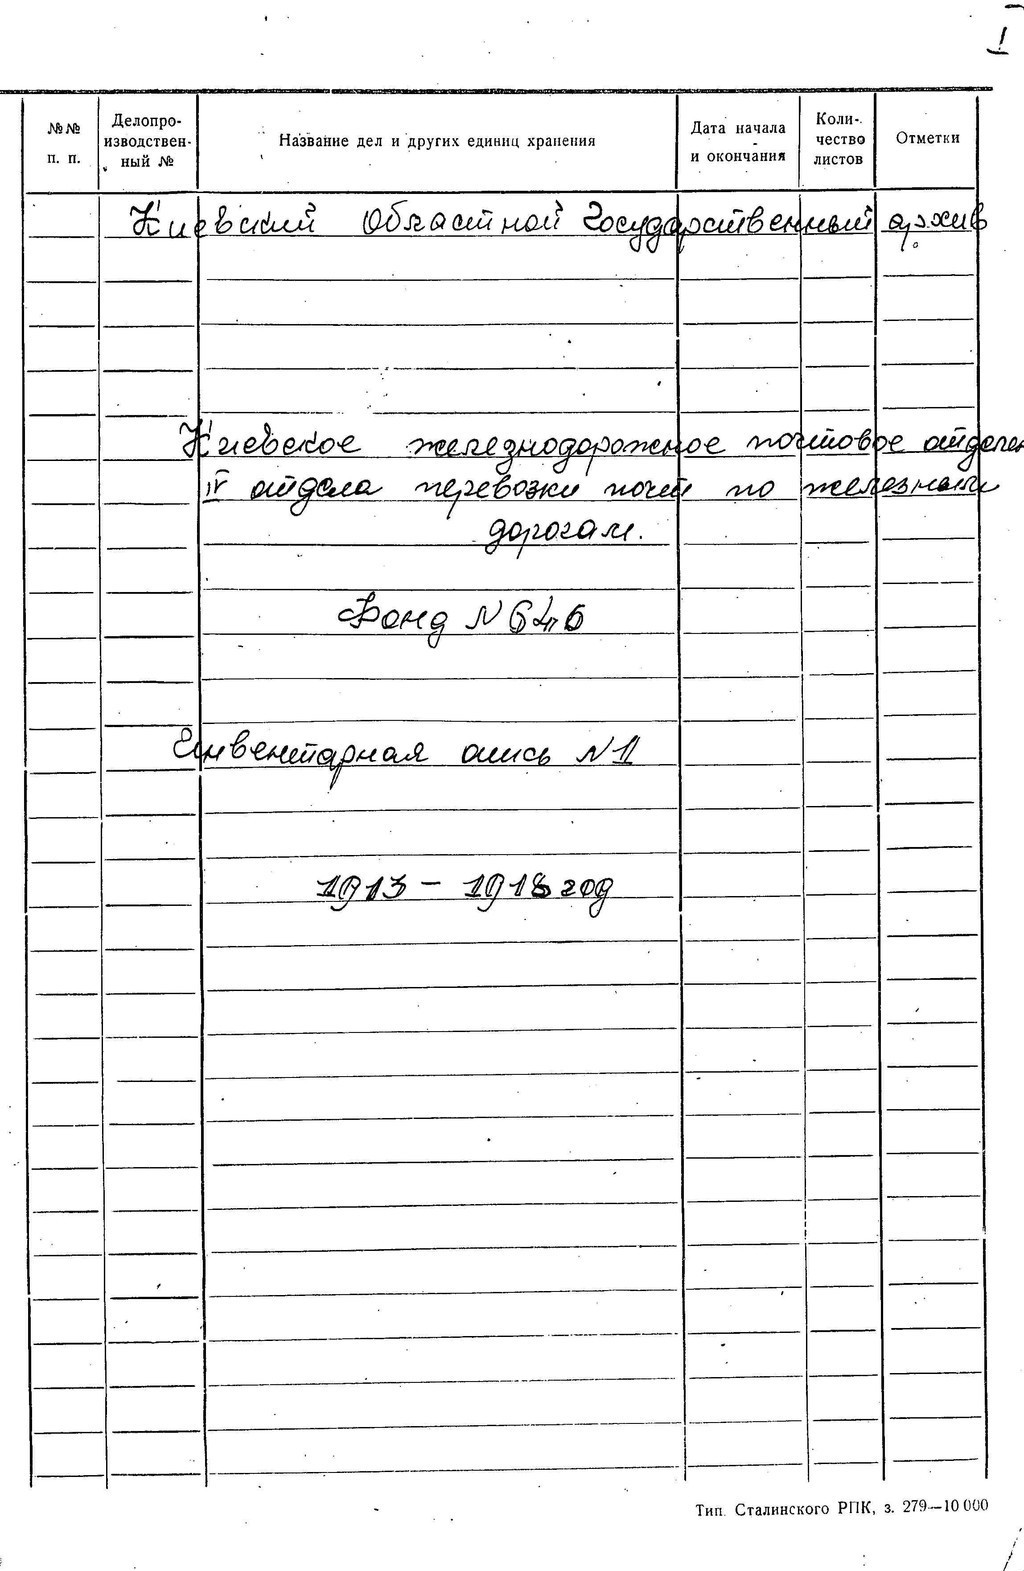 1
№№ п. п.
Делопроизводствен-ный №
Название дел и других единиц хранения
Дата начала и окончания
Коли-чество листов
Отметки
Киевский Областной Государственный архив
Киевское железнодорожное почтовое отделен
IV отдела перевозки почт по железным
дорогам.
Фонд N 646
Инвентарная опись N 1
1913 – 1918 год
Тип. Сталинского РПК, з. 279—10 000